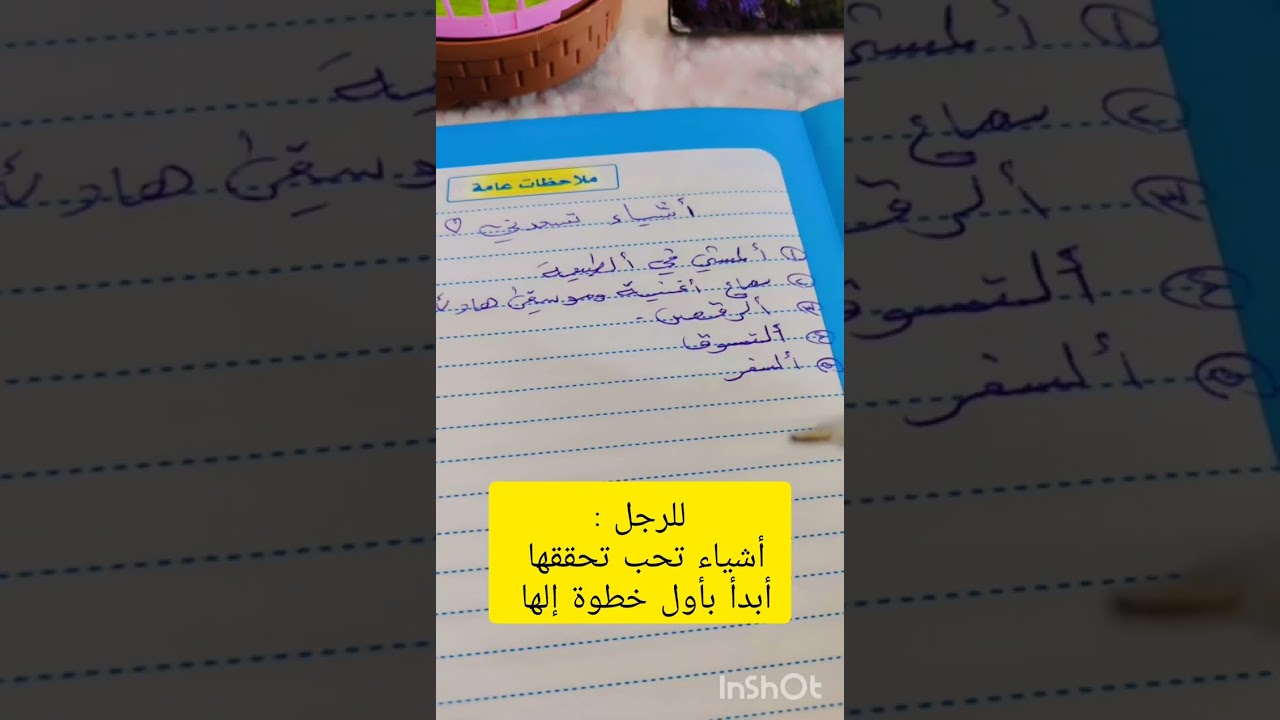 ملاحظات عامة
أشياء تسعدني ♡
١ ألمشي في ألطبيعة
٢ سماع أغنية وموسيقى هادئة
٣ ألرقص
٤ ألتسوق
٥ ألسفر
للرجل :
أشياء تحب تحققها
أبدأ بأول خطوة إلها
InShOt